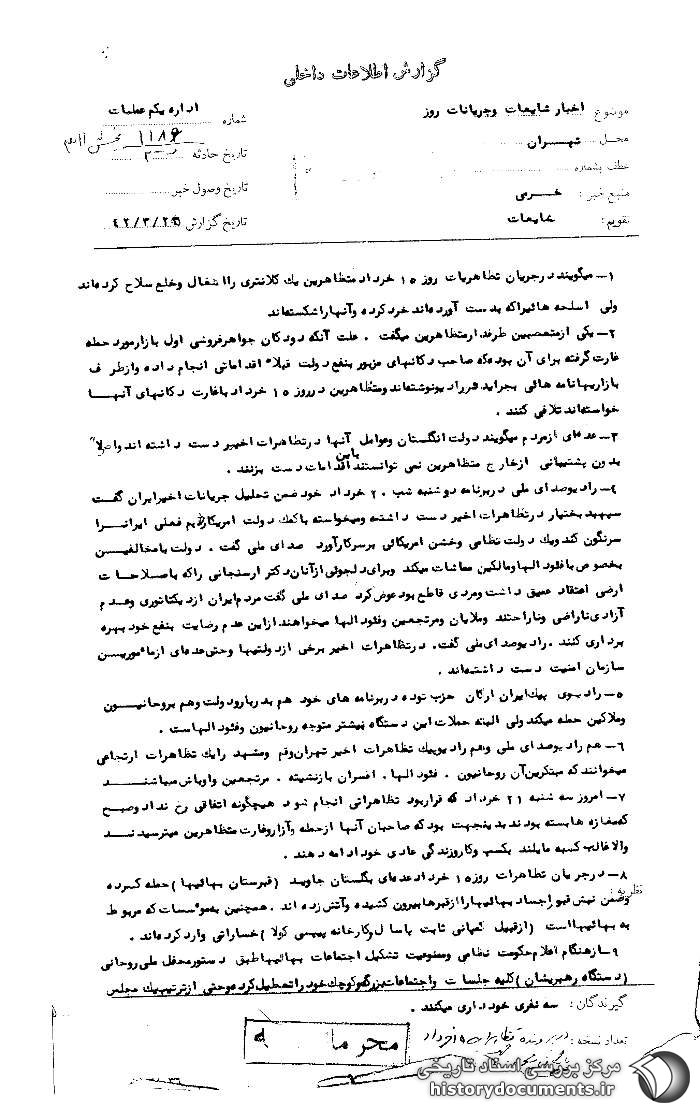 گزارش اطلاعات داخلی
موضوع اخبار شایعات وجریانات روز
اداره یکم عملیات
محل تهران
شماره ۱۱۸۶
عطف بشماره
تاریخ حادثه
منبع خبر: خرمی
تاریخ وصول خبر
تقویم: شایعات
تاریخ گزارش ۴۲/۳/۲۵
۱- میگویند درجریان تظاهرات روز ۱۵ خرداد متظاهرین یك کلانتری رااشغال وخلع سلاح کرده‌اند
ولی اسلحه هائیراکه بدست آورده‌اند خردکرده وآنهاراشکسته‌اند
۲- یکی ازمتعصبین طرفدارمتظاهرین میگفت . علت آنکه دودکان جواهرفروشی اول بازارمورد حمله
غارت گرفته برای آن بوده‌که صاحب دکانهای مزبور بنفع دولت قبلا" اقداماتی انجام داده وازطرف
بازاریهانامه هائی بجراید نوشته‌اند ومتظاهرین درروز ۱۵ خرداد باغارت دکانهای آنها
خواسته‌اند تلافی کنند .
۳- عده‌ای ازمردم میگویند دولت انگلستان وعوامل آنها درتظاهرات اخیر دست داشته اند واصولا"
بدون پشتیبانی ازخارج متظاهرین نمی توانستند باین اقدامات دست بزنند .
۴- رادیوصدای ملی دربرنامه دوشنبه شب ۲۰ خرداد خود ضمن تحلیل جریانات اخیرایران گفت
سپهبد بختیار درتظاهرات اخیر دست داشته ومیخواسته باکمك دولت امریکارژیم فعلی ایرانرا
سرنگون کند ویك دولت نظامی وخشن امریکائی برسرکارآورد صدای ملی گفت . دولت بامخالفین
بخصوص بافئودالهاومالکین مماشات میکند وبرای دلجوئی ازآنان دکتر ارسنجانی راکه باصلاحات
ارضی اعتقاد عمیق داشت ومردی قاطع بود عوض کرد صدای ملی گفت مردم ایران ازدیکتاتوری وعدم
آزادی ناراضی وناراحتند وملایان ومرتجعین وفئودالها میخواهند ازاین عدم رضایت بنفع خود بهره
برداری کنند .رادیوصدای ملی گفت. درتظاهرات اخیر برخی ازدولتیها وحتی عده‌ای ازمامورین
سازمان امنیت دست داشته‌اند .
۵- رادیوی پیك ایران ارگان حزب توده دربرنامه های خود هم بدربارودولت وهم بروحانیون
وملاکین حمله میکند ولی البته حملات این دستگاه بیشتر متوجه روحانیون وفئودالهاست .
۶- هم رادیوصدای ملی وهم رادیوپیك تظاهرات اخیر تهران وقم ومشهد رایك تظاهرات ارتجاعی
میخوانند که مبتکرین آن روحانیون . فئودالها . افسران بازنشسته . مرتجعین واوباش میباشند
۷- امروز سه شنبه ۲۱ خرداد که قراربود تظاهراتی انجام شود هیچگونه اتفاقی رخ نداد وصبح
که‌مغازه هابسته بودند بدینجهت بود که صاحبان آنها ازحمله وآزاروغارت متظاهرین میترسیدند
والاغالب کسبه مایلند بکسب وکاروزندگی عادی خود ادامه دهند .
۸- درجریان تظاهرات روز ۱۵ خرداد عده‌ای بگلستان جاوید (قبرستان بهائیها) حمله کرده
نظریه:
وضمن نبش قبور اجساد بهائیهاراازقبرها بیرون کشیده وآتش زده اند . همچنین به‌موسسات که مربوط
به بهائیهااست (ازقبیل کمپانی ثابت پاسال وکارخانه پپسی کولا) خساراتی وارد کرده‌اند .
۹- ازهنگام اعلام حکومت نظامی وممنوعیت تشکیل اجتماعات بهائیها طبق دستور محفل ملی روحانی
(دستگاه رهبریشان) کلیه جلسات واجتماعات بزرگ وکوچك خود را تعطیل کرده‌وحتی ازترتیب یك مجلس
گیرندگان: سه نفری خودداری میکنند .
تعداد نسخه:
در پرونده تظاهرات ۱۵ خرداد
محرمانه
مرکز بررسی اسناد تاریخی
historydocuments.ir